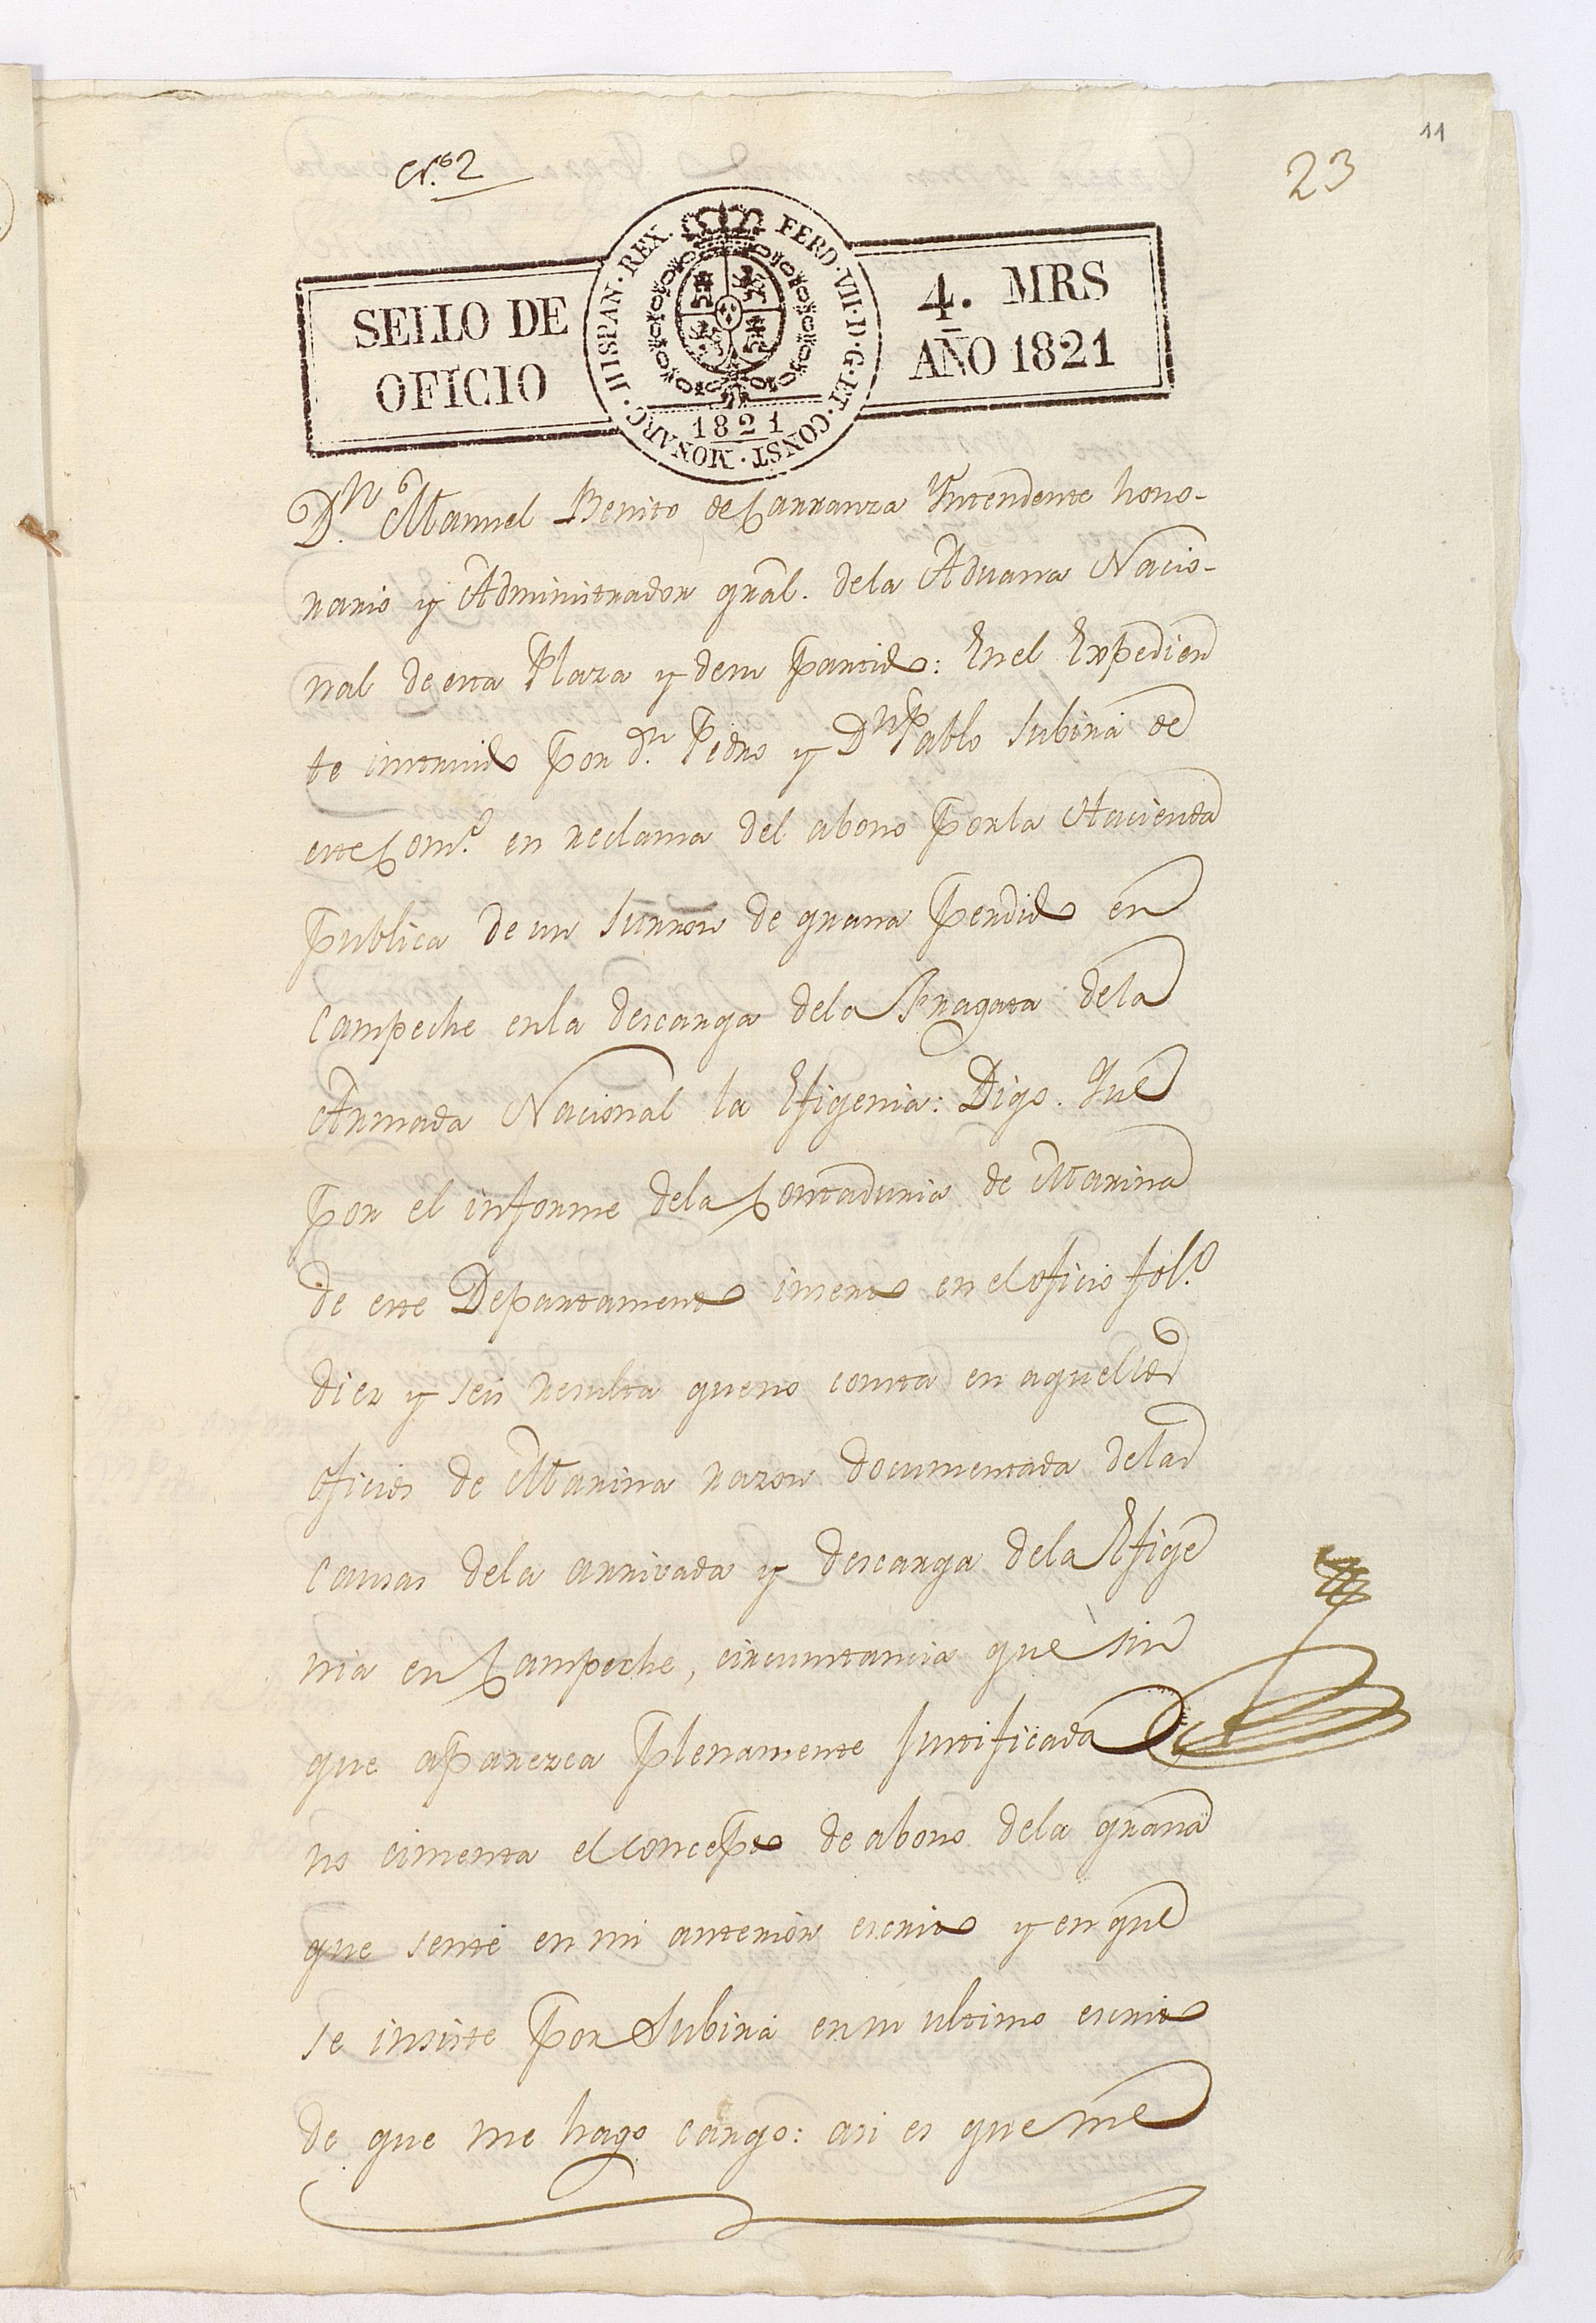 11
23
Cr.to 2
SELLO DE
OFICIO
FERD·VII·D·G·ET·CONST·MONARC·HISPAN·REX.
1821
4. MRS
AÑO 1821
D.n Manuel Benito de Carranza Yntendente hono-
rario y Administrador gral. dela Aduana Nacio-
nal de esta Plaza y desu partido: En el Expedien
te instruido por d.n Pedro y D.n Pablo Subirá de
este Com.o en reclama del abono porla Hacienda
publica de un surron de grana perdido en
Campeche enla descarga dela Fragata dela
Armada Nacional la Efigenia: Digo. Que
por el informe dela Contaduria de Marina
de este Departamento inserto en el oficio fol.o
diez y seis resulta queno consta en aquellas
oficios de Marina razon documentada delas
causas dela arrivada y descarga dela Efige
nia en Campeche, circunstancia que sin
que aparezca plenamente justificada
no cimenta el concepto de abono dela grana
que senté en mi anterior escrito y en que
se insiste por Subirá ensu ultimo escrito
de que me hago cargo: asi es que me